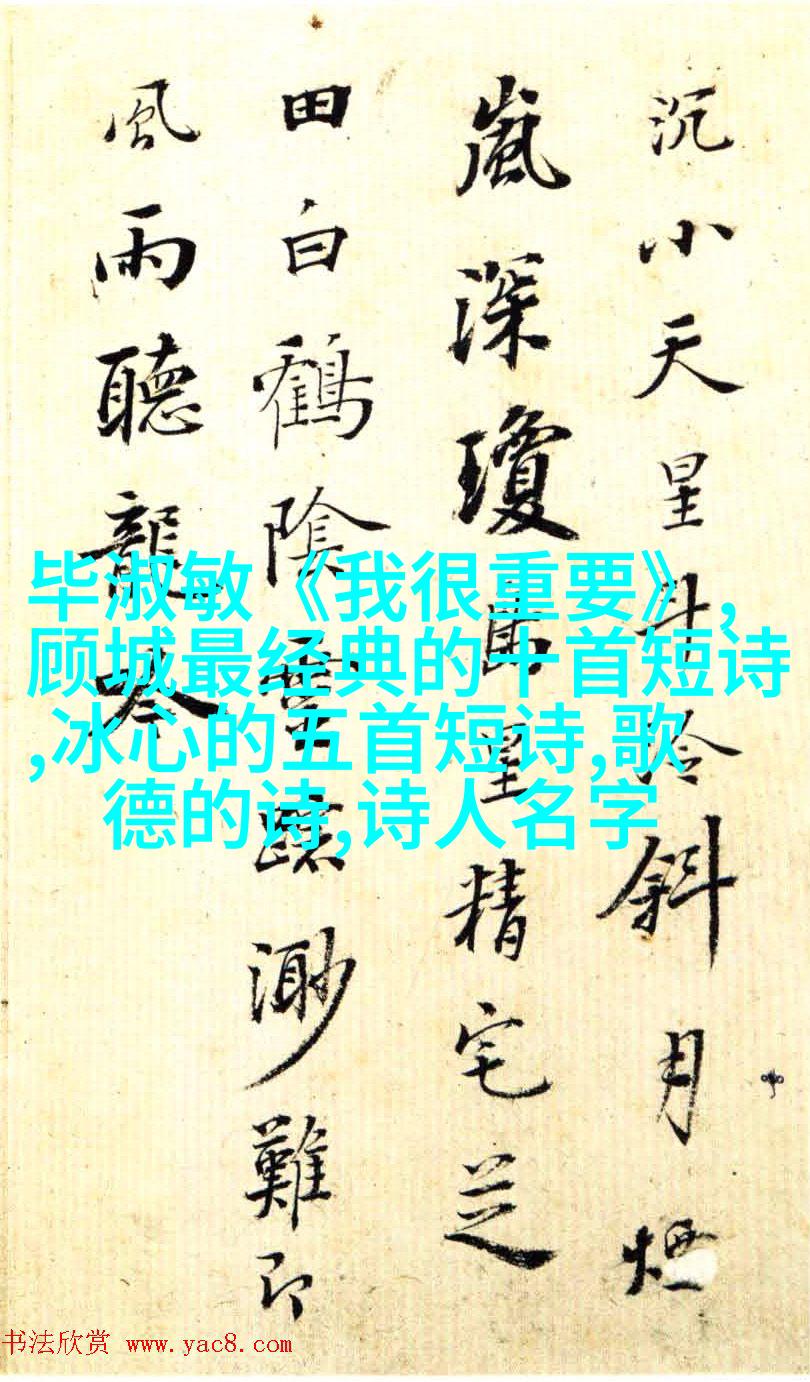 沉小天星斗冷斜月煙
嵐深瓊精宅芝
田白鶴陰渺難即
風雨聽龍吟
毕淑敏《我很重要》,
顾城最经典的十首短诗
,冰心的五首短诗,歌
德的诗,诗人名字
书法欣赏 www.yac8.com